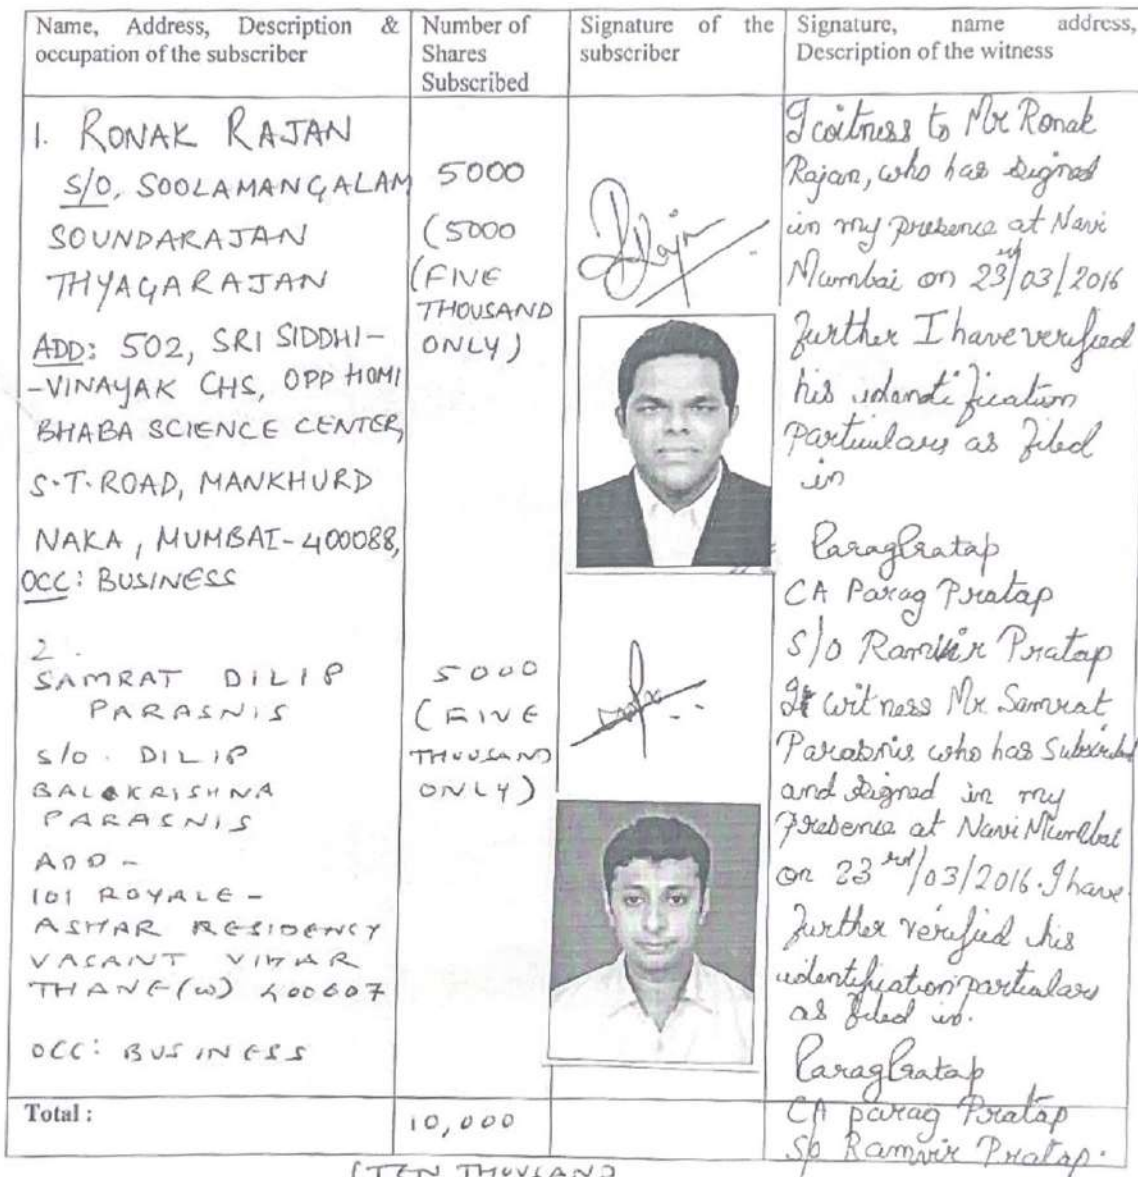 Name, Address, Description &
occupation of the subscriber
Number of
Shares
Subscribed
Signature of the
subscriber
Signature, name address,
Description of the witness
1. RONAK RAJAN
S/O, SOOLAMANGALAM
SOUNDARAJAN
THYAGARAJAN
ADD: 502, SRI SIDDHI-
-VINAYAK CHS, OPP HOMI
BHABA SCIENCE CENTER,
S.T. ROAD, MANKHURD
NAKA, MUMBAI-400088,
OCC: BUSINESS
5000
(5000
(FIVE
THOUSAND
ONLY)
I witness to Mr Ronak
Rajan, who has signed
in my presence at Navi
Mumbai on 23rd/03/2016
further I have verified
his identification
particulars as filed
in
Parag Pratap
CA Parag Pratap
S/o Ramvir Pratap
2.
SAMRAT DILIP
PARASNIS
S/O. DILIP
BALAKRISHNA
PARASNIS
ADD -
101 ROYALE -
ASHAR RESIDENCY
VASANT VIHAR
THANE(W) 400607
OCC: BUSINESS
5000
(FIVE
THOUSAND
ONLY)
I witness Mr. Samrat
Parasnis who has Subscribed
and signed in my
presence at Navi Mumbai
on 23rd/03/2016. I have
further verified his
identification particulars
as filed in.
Parag Pratap
CA parag Pratap
S/o Ramvir Pratap.
Total :
10,000
(TEN THOUSAND